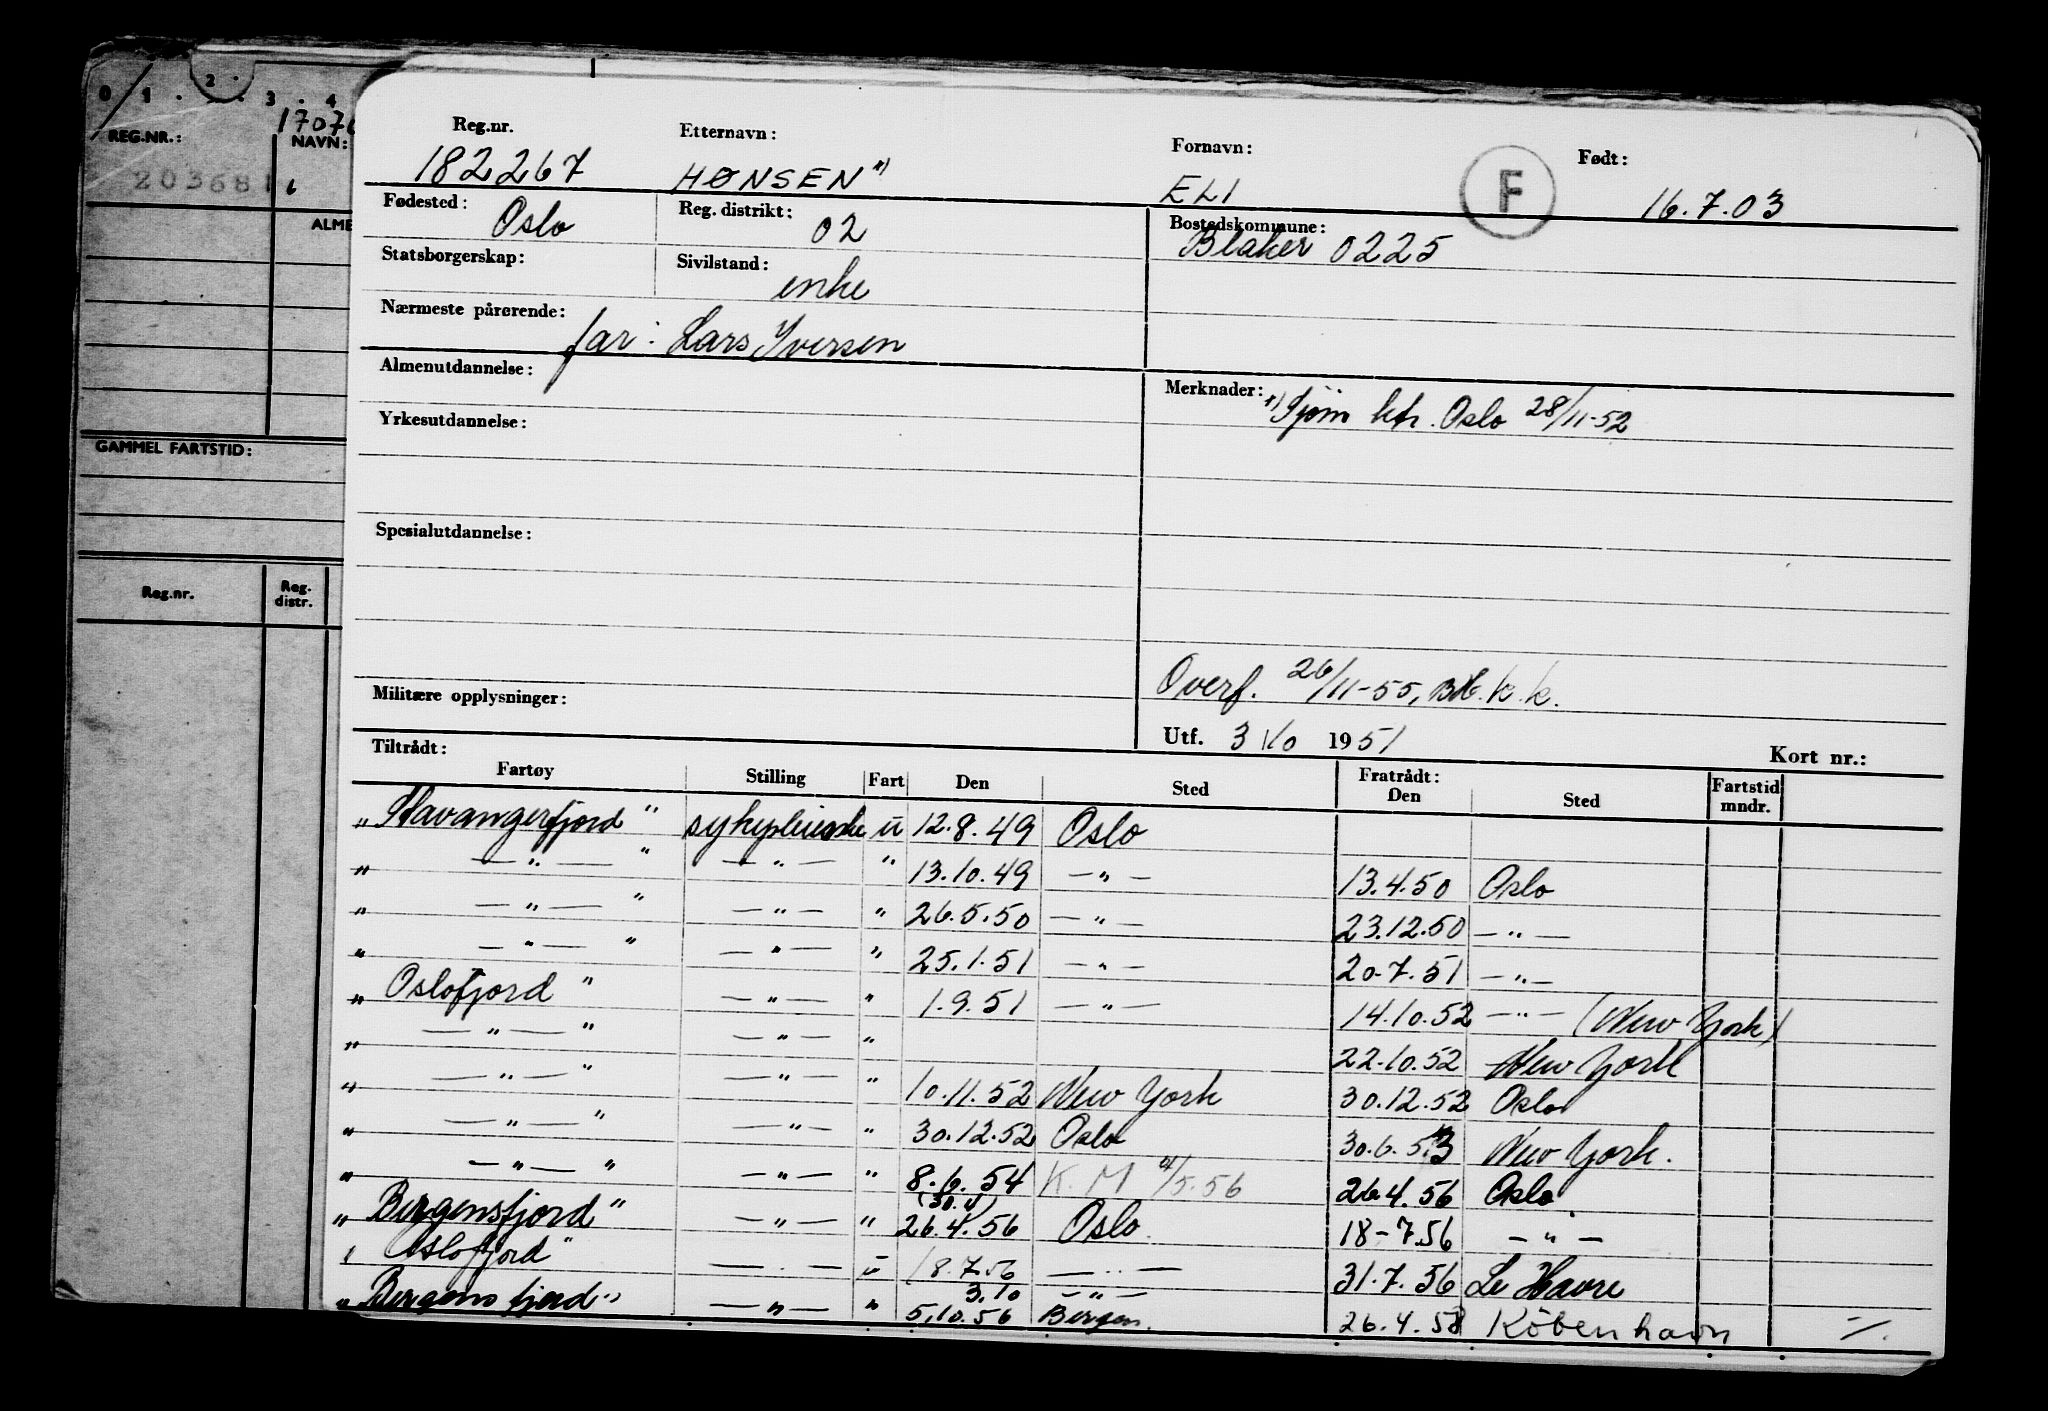 0 1 . 2 . 3 . 4
REG.NR.: NAVN:
203681
ALME
GAMMEL FARTSTID:
Reg.nr. Reg. distr.
Reg.nr. Etternavn: Fornavn: Født:
182267 HØNSEN ") ELI F 16.7.03
Fødested: Oslo Reg. distrikt: 02 Bostedskommune: Blaker 0225
Statsborgerskap: Sivilstand: enke
Nærmeste pårørende: far: Lars Iversen
Almenutdannelse: Merknader: ") Sjøm ktr. Oslo 28/11-52
Yrkesutdannelse:
Spesialutdannelse:
Overf. 26/11-55, k.k.
Militære opplysninger:
Utf. 3/10 1951 Kort nr.:
Tiltrådt: Fratrådt:
Fartøy Stilling Fart Den Sted Den Sted Fartstid mndr.
"Stavangerfjord" sykepleierske u 12.8.49 Oslo
" —"— " —"— " 13.10.49 —"— 13.4.50 Oslo
" —"— " —"— " 26.5.50 —"— 23.12.50 —"—
" —"— " —"— " 25.1.51 —"— 20.7.51 —"—
" Oslofjord " —"— " 1.9.51 —"— 14.10.52 —"— (New York)
" —"— " —"— " 22.10.52 New York
" —"— " —"— " 10.11.52 New York 30.12.52 Oslo
" —"— " —"— " 30.12.52 Oslo 30.6.53 New York.
" —"— " —"— " 8.6.54 K.M 4/5.56 26.4.56 Oslo
" Bergensfjord " —"— " (30.4) 26.4.56 Oslo 18-7.56 —"—
" Oslofjord " —"— " 18.7.56 —"— 31.7.56 Le Havre
3.10 —"—
" Bergensfjord " —"— " 5.10.56 Bergen. 26.4.58 København -/-